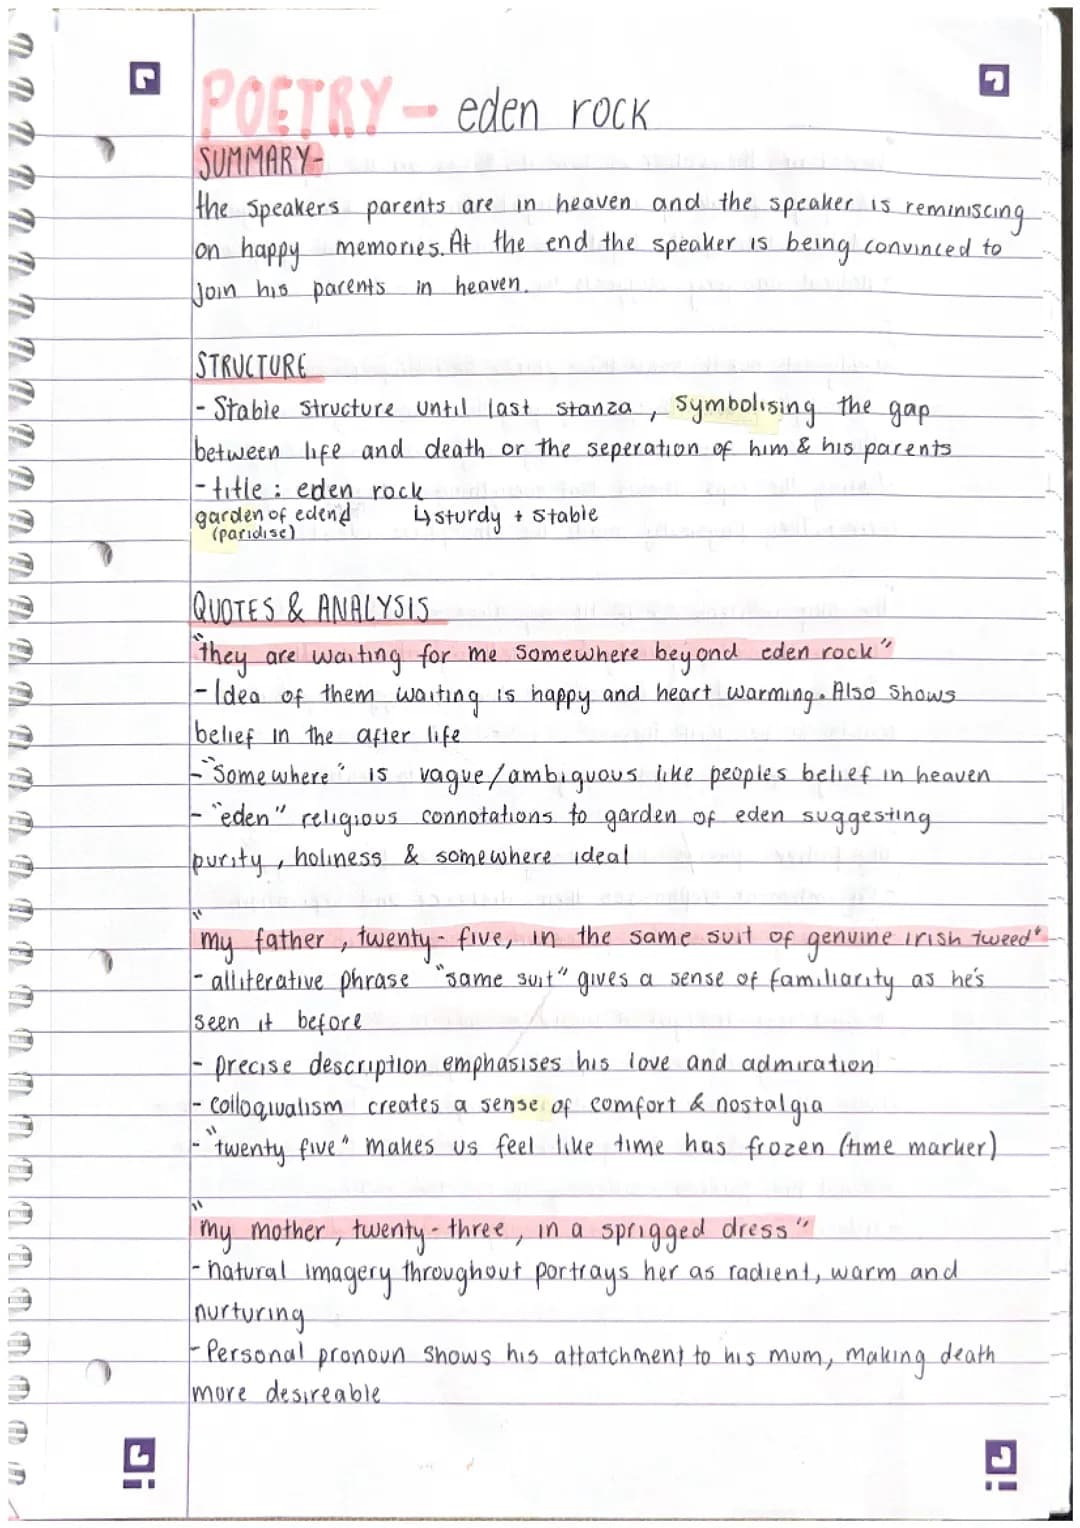 POETRY - eden rock
SUMMARY-
the speakers parents are in heaven and the speaker is reminiscing
on happy memories. At the end the speaker is being convinced to
join his parents in heaven.
STRUCTURE
- Stable structure until last stanza, symbolising the gap
between life and death or the seperation of him & his parents
- title: eden rock
garden of eden ↳ sturdy + stable
(paridise)
QUOTES & ANALYSIS
"they are waiting for me somewhere beyond eden rock"
- Idea of them waiting is happy and heart warming. Also shows
belief in the after life
- "Somewhere" is vague/ambiguous like peoples belief in heaven
- "eden" religious connotations to garden of eden suggesting
purity, holiness & somewhere ideal
"my father, twenty-five, in the same suit of genuine irish tweed"
- alliterative phrase "same suit" gives a sense of familiarity as he's
seen it before
- precise description emphasises his love and admiration
- colloquialism creates a sense of comfort & nostalgia
- "twenty five" makes us feel like time has frozen (time marker)
"my mother, twenty-three, in a sprigged dress"
- natural imagery throughout portrays her as radient, warm and
nurturing
- Personal pronoun shows his attatchment to his mum, making death
more desireable